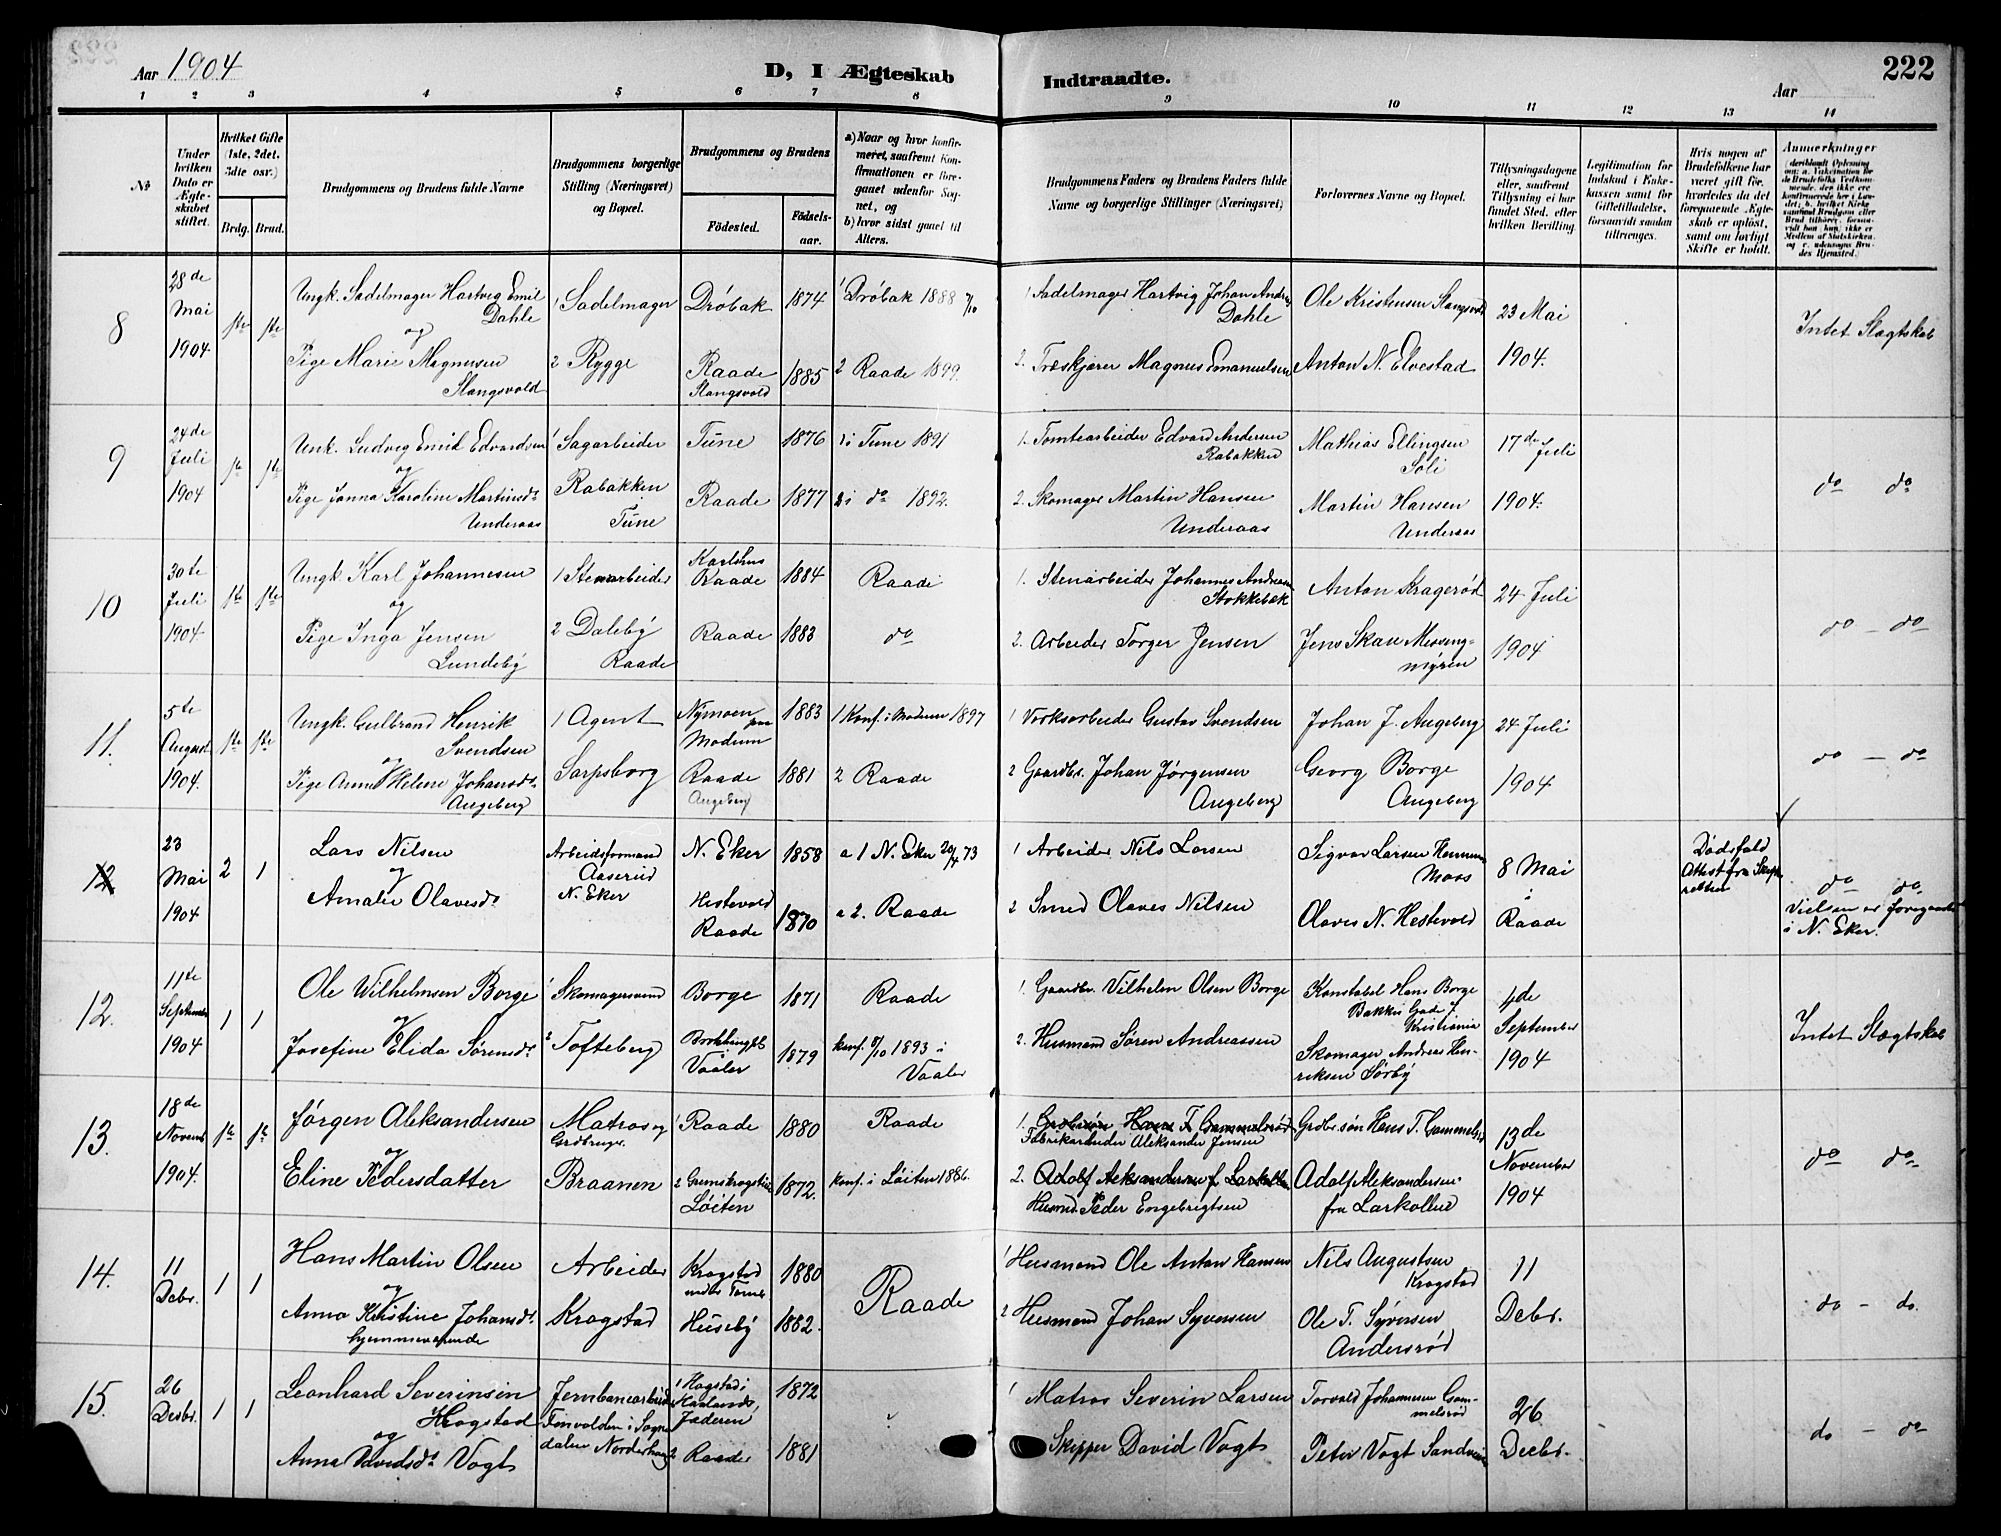 Aar 1904
D, I Ægteskab Indtraadte.
Aar
222
1 2 3 4 5 6 7 8 9 10 11 12 13 14
No
Under hvilken Dato er Ægteskabet stiftet.
Hvilket Gifte (1ste, 2det, 3dte osv.)
Brdg. Brud.
Brudgommens og Brudens fulde Navne
Brudgommens borgerlige Stilling (Næringsvei) og Bopæl.
Brudgommens og Brudens
Fødested. Fødselsaar.
a) Naar og hvor konfirmeret, saafremt Konfirmationen er foregaaet udenfor Sognet, og
b) hvor sidst gaaet til Alters.
Brudgommens Faders og Brudens Faders fulde Navne og borgerlige Stillinger (Næringsvei)
Forlovernes Navne og Bopæl.
Tillysningsdagene eller, saafremt Tillysning ei har fundet Sted, efter hvilken Bevilling.
Legitimation for Indskud i Enkekassen samt for Giftetilladelse, forsaavidt saadan tiltrænges.
Hvis nogen af Brudefolkene har været gift før, hvorledes da det foregaaende Ægteskab er opløst, samt om lovligt Skifte er holdt.
Anmærkninger
8
28de Mai 1904
1ste 1ste
Ungk. Sadelmager Hartvig Emil Dahle
og
Pige Marie Magnusen Slangsvold
1 Sadelmager
2 Rygge
Drøbak 1874
Raade Slangsvold 1885
1 Drøbak 1888 7/10
2 Raade 1899.
1 Sadelmager Hartvig Johan Andreas Dahle
2. Træskjærer Magnus Emanuelsen
Ole Kristensen Slangsvold
Anton N. Elvestad
23 Mai 1904.
Intet Slægtskab
9
24de Juli 1904
1ste 1ste
Unk. Ludvig Emil Edvardsen
og
Pige Janna Karoline Martinsd. Underaas
1 Sagarbeider
Rabakken Tune
Tune 1876
Raade 1877
1 i Tune 1891
2 i do 1892.
1. Tomtearbeider Edvard Andersen Rabakken
2. Skomager Martin Hansen Underaas
Mathias Ellingsen Soli
Martin Hansen Underaas
17de Juli 1904.
do do
10
30te Juli 1904
1ste 1ste
Ungk. Karl Johannesen
og
Pige Inga Jensen Lundeby
1 Stenarbeider
2 Daleby Raade
Karlshus Raade 1884
Raade 1883
Raade
do
1. Stenarbeider Johannes Andreasen Stokkebæk
2. Arbeider Torger Jensen
Anton Kragerød
Jens Skau
24 Juli 1904
do - do
11.
5te August 1904.
1ste 1ste
Ungk. Gulbrand Henrik Svendsen
og
Pige Anna Helene Johansd. Augeberg
1 Agent
Sarpsborg
Nymoen paa Modum 1883
Raade Augeberg 1881
1 Konf. i Modum 1897
2 Raade
1 Værksarbeider Gustav Svendsen
2 Gaardbr. Johan Jørgensen Augeberg
Johan J. Augeberg
Georg Borge Augeberg
24 Juli 1904
do - do
12
23 Mai 1904
2 1
Lars Nilsen
og
Amalie Olavesd.
Arbeidsformand Aaserud N. Eker
N. Eker 1858
Hestevold Raade 1870
a 1 N. Eker 20/4 73
a 2. Raade
1 Arbeider Nils Larsen
2 Smed Olaves Nilsen
Sigvar Larsen Moss
Olaves N. Hestevold
8 Mai i Raade
Dødsfald Attest fra Skifteretten
do do
Vielsen er foregaaet i N. Eker.
12.
11te September 1904
1 1
Ole Wilhelmsen Borge
og
Josefine Elida Sørensd.
1 Skomagersvend
2 Tofteberg
Borge 1871
Vaaler 1879
Raade
konf. 8/10 1893 i Vaaler
1. Gaardbr. Vilhelm Olsen Borge
2. Husmand Søren Andreassen
Konstabel Hans Borge Bakkes Gade 7 Kristiania
Skomager Andreas Henriksen Sørby
4de September 1904
Intet Slægtskab
13.
18de Novemb 1904
1ste 1ste
Jørgen Aleksandersen
og
Eline Pedersdatter
Matros og Grdbruger
Braanen
1 Raade 1880
2 Løiten 1872.
Raade
konf. i Løiten 1886.
1. Grdbrsøn Hans T. Gammelsrød
Fabrikarbeider Aleksander Jensen
2. Adolf Aleksandersen f. Larkollen
Husmd. Peder Engebrigtsen
Grdbr.søn Hans T. Gammelsrød
Adolf Aleksandersen fra Larkollen
13de November 1904
do do
14.
11 Decbr.
1 1
Hans Martin Olsen
og
Anna Kristine Johansd. hjemmeværende
Arbeider
Krogstad
Krogstad 1880
Huseby 1882.
Raade
1 Husmand Ole Anton Hansen
2 Husmand Johan Syversen
Nils Augustsen Krogstad
Ole T. Syversen Andersrød
11 Decbr.
do - do.
15.
26 Decbr.
1 1
Leonhard Severinsen Hogstad
og
Anna Davidsd. Vogt
Jernbanearbeider
Finvolden i Sognedalen Norderhaug
1 Hogstad i Haaland, Jæderen 1872
2 Raade 1881
1 Matros Severin Larsen
Skipper David Vogt
Torvald Johannesen Gammelsrød
Peter Vogt Sandvin
26 Decbr.
do - do